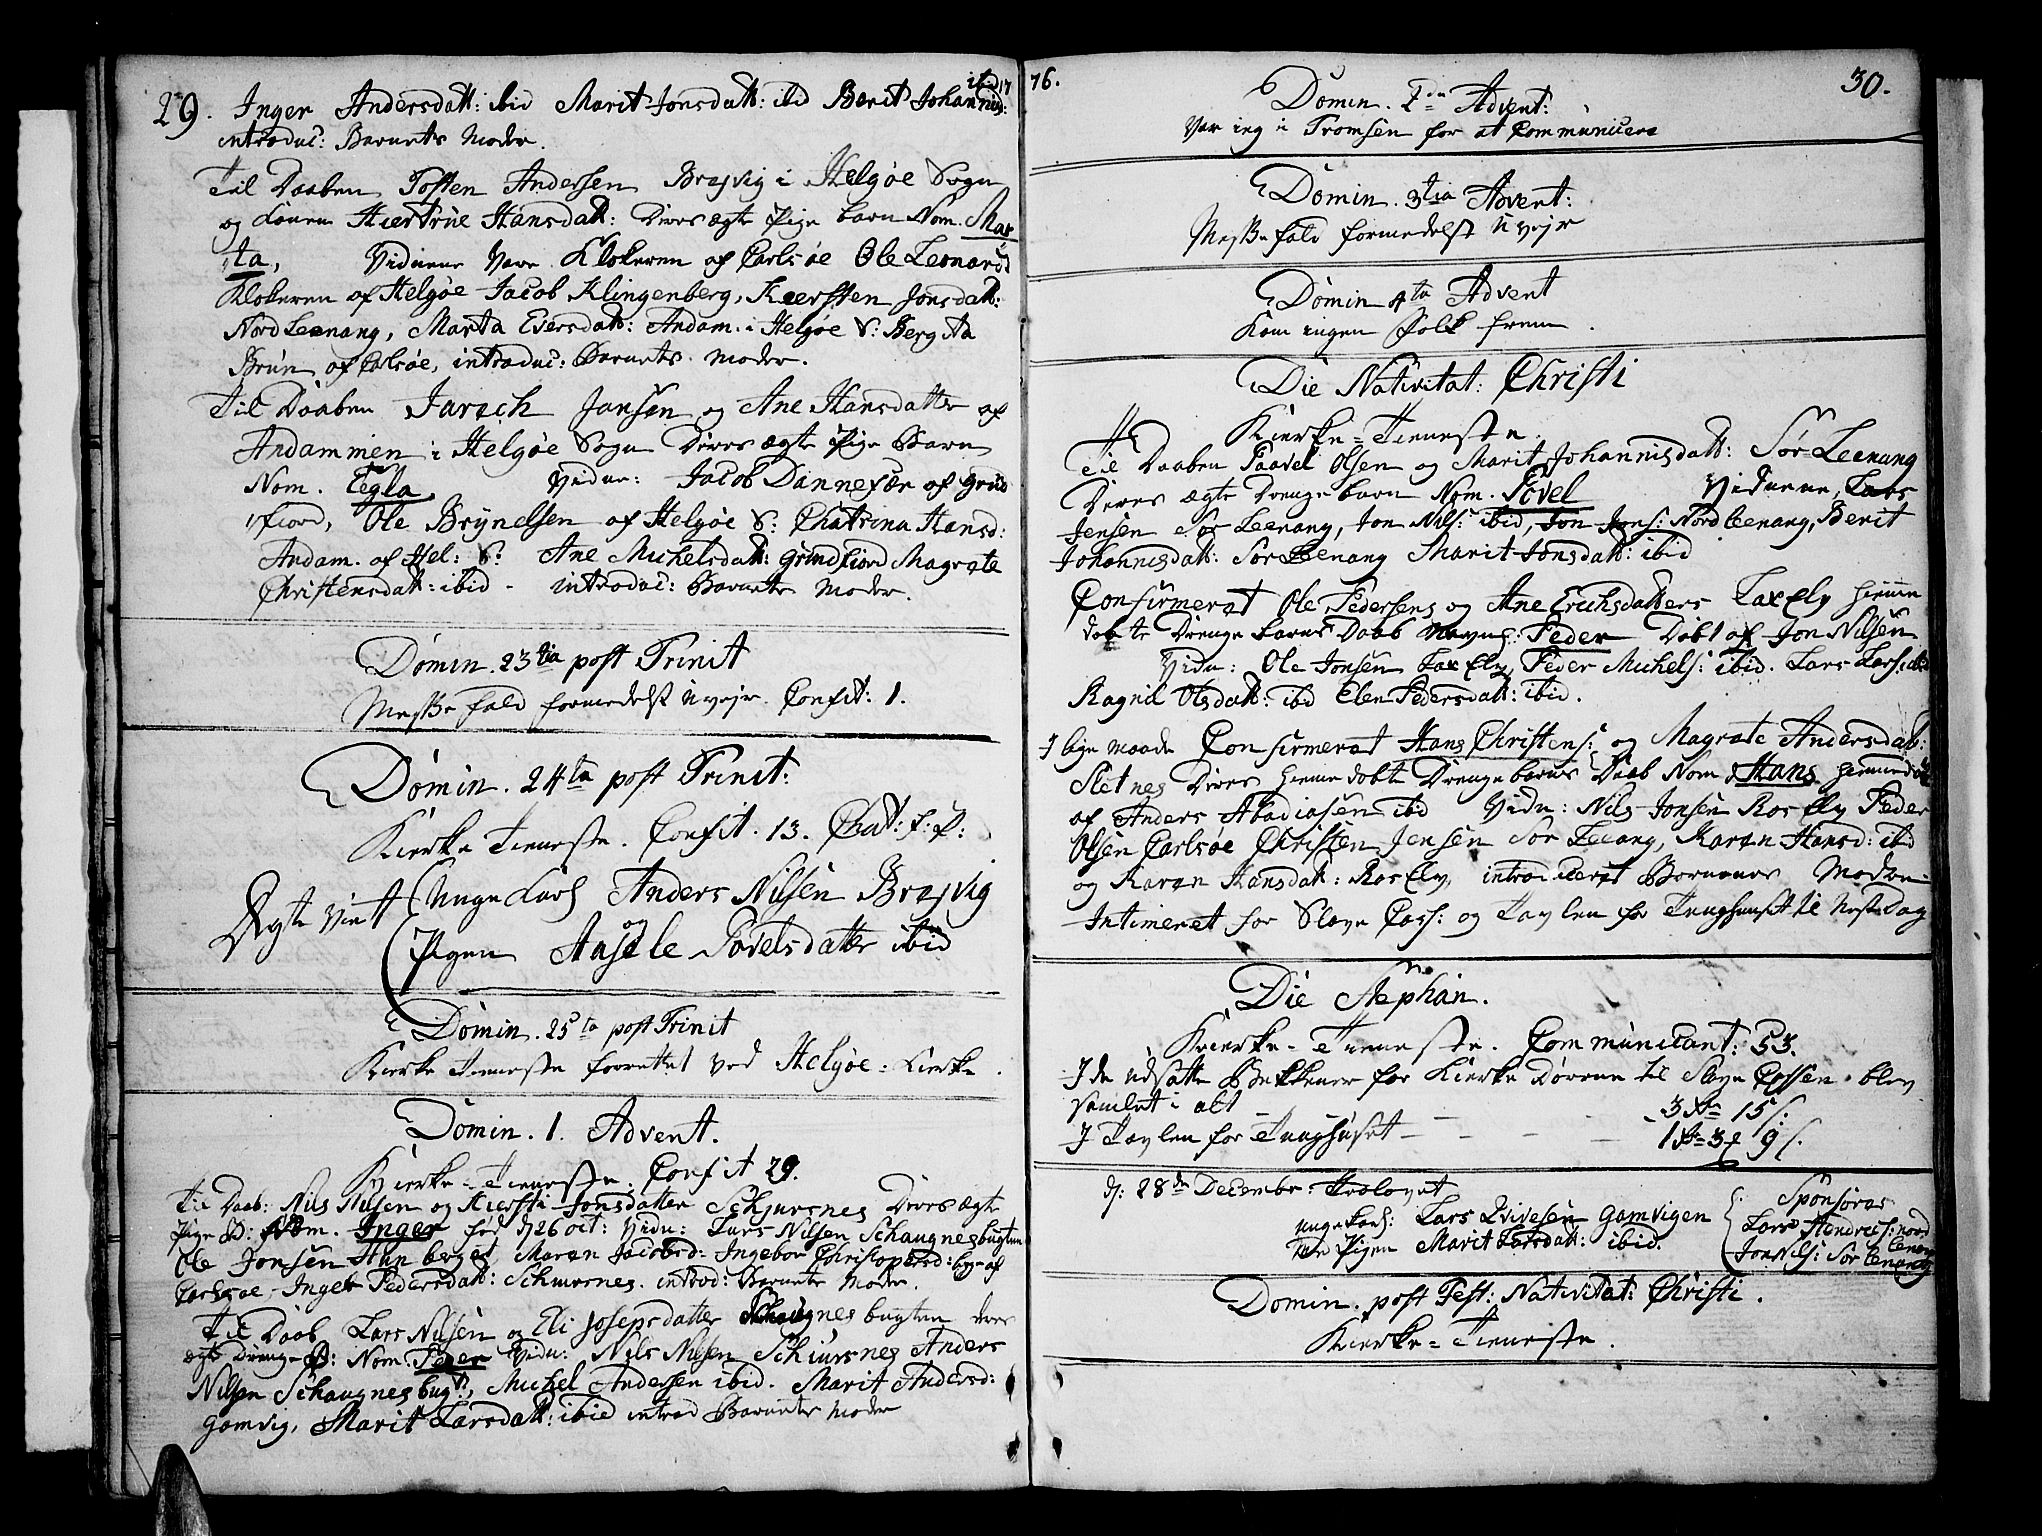 29. Inger Andersdatt: ibid Marit Jonsdatt: ibd Berit Johannis: ibid 17
introduc: Barnets Moder.
Til Daaben Tosten Andersen Brejvig i Helgøe Sogn
og konen Hiertrue Hansdatt: Deres ægte Pige barn Nom. Mar
ta, Vidnene vare Klokeren af Carlsøe Ole Leonards
Klokeren af Helgøe Jacob Klingenberg, Kiersten Jonsdatt:
Nord Leenang, Marta Eversdatt: Andam. i Helgøe S: Bergita
Brun af Carlsøe, introduc: Barnets Moder.
Til Daaben Jarøch Jonsøn og Ane Hansdatter af
Andammen i Helgøe Sogn Deres ægte Pige Barn
Nom. Tegla Vidne: Jacob Dannefær af Grund
fiord, Ole Brynelsen af Helgøe S: Chatrina Hansd:
Andam. af Hel: S: Ane Michelsdatt: Grundfiord Magrete
Christensdatt: ibid - introduc: Barnets Moder.
Domin. 23tia post Trinit
Messe fald formedelst Uvejr. Confit: 1.
Domin. 24ta post Trinit:
Kierke Tieneste. Confit. 13. Chat: f: p:
Ægte Viet Unge Karl Anders Nilsen Brejvig
og
Pigen Aasele Povelsdatter ibid
Domin. 25ta post Trinit
Kierke Tieneste forrettet ved Helgøe: Kierke.
Domin. 1. Advent.
Kierke-Tieneste. Confit 29.
Til Daab: Nils Nilsen og Kiersti Jonsdatter Schjursnes Deres ægte
Pige B: Nom. Inger fød d 26 oct: Vidn: Lars Nilsen Schaugnesbugten
Ole Jonsen Hanberget, Maren Jacobsd: Ingebor Christopersd: begge af
Carlsøe - Inger Pedersdatt: Schiursnes. introd: Barnets Moder.
Til Daab Lars Nilsen og Eli Josepsdatter Schaugnesbugten deres
ægte Drenge B: Nom. Peder Vidn: Nils Nilsen Schiursnes Anders
Nilsen Schaugnesbugt:, Michel Andersen ibid. Marit Andersd:
Gamvig, Marit Larsdatt: ibid introd Barnets Moder
76. 30.
Domin. 2da Advent:
Var ieg i Tromsen for at Communicere
Domin. 3tia Advent:
Messe fald formedelst Uvejr
Domin 4ta Advent
Kom ingen Folk frem.
Die Nativitat: Christi
Kierke-Tieneste.
Til Daaben Paavel Olsen og Marit Johannisdatt: Sør Leenang
Deres ægte Drenge barn Nom. Povel Vidnene, Lars
Jensen Sør Leenang, Jon Nils: ibid, Jon Jons: Nord Leenang, Berit
Johannisdatt: Sør Leenang Marit Jonsdatt: ibid
Confirmeret Ole Pedersens og Ane Erichsdatters LaxElv hieme
døbte Drenge barns Daab Navnl: Peder Døbt af Jon Nilsen
Vidn: Ole Jonsen LaxElv, Peder Michels: ibid. Lars Lars: ibid
Ragnil Olsdatt: ibid Elen Pedersdatt: ibid.
I lige maade Confirmeret Hans Christens: og Magrete Andersdat:
Sletnes Deres hieme døbte Drenge barns Daab Nom Hans hieme døbt
af Anders Abadiasen ibid Vidn: Nils Jonsen RosElv Peder
Olsen Carlsøe Christen Jensen Sør Leeang, Karen Hansd: ibid
og Karen Hansdatt: RosElv, introduceret Børnenes Mødre
Intimeret for Slave Cass: og Tavlen for Tugthuset til Næste Dag
Die Stephan.
Kierke-Tieneste. Communicant: 53.
I de udsatte Bekkener for Kierke Dørrene til Slave Cassen blev
samlet i alt - 3 Xr 15 s:
I Tavlen for Tugthuset - - - - 1 Xr 3 9 s.
d: 28de Decembr: Trolovet
unge Karl: Lars Qvivesen Gamvigen
og Pigen Marit Larsdatt: ibid.
Sponsores
Lars Hendrics: Nord Lenang
Jon Nils: Sør Lenang
Domin. post Fest: Nativitat: Christi.
Kierke-Tieneste.